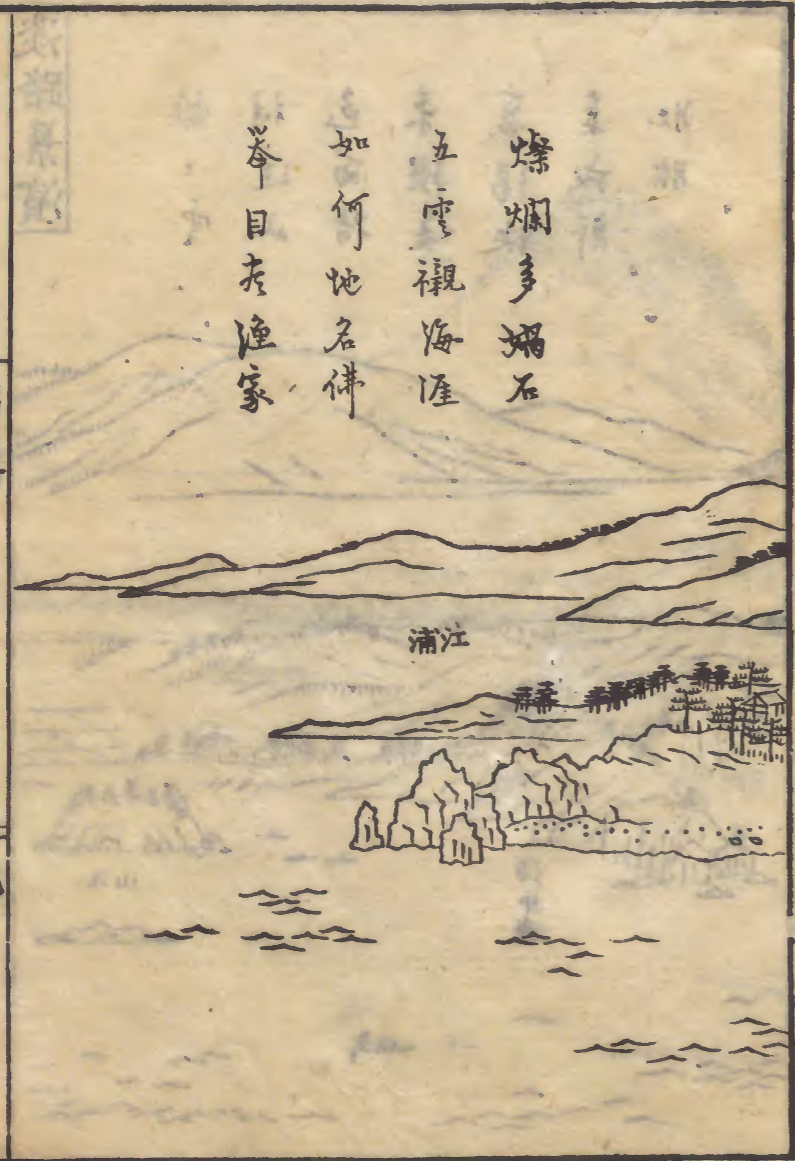 燦爛多媧石
五雲襯海涯
如何地名佛
挙目尽漁家
江浦